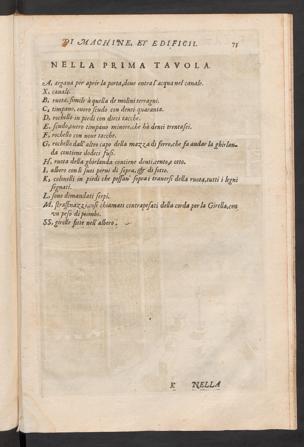 DI MACHINE, ET EDIFICII. 75
NELLA PRIMA TAVOLA.
A. argana per aprir la porta, doue entra l'acqua nel canale.
X. canale.
B. ruota, simile à quella de molini terragni.
C. timpano, ouero scudo con denti quaranta.
D. rochello in piedi con dieci tacche.
E. scudo, ouero timpano minore, che hà denti trentasei.
F. rochello con noue tacche.
G. rochello dall'altro capo della mazza di ferro, che fa andar la ghirlan-
da contiene dodeci fusi.
H. ruota della ghirlanda contiene denti, cento, e otto.
I. albero con li suoi perni di sopra, & di sotto.
K. colonelli in piedi che sopra i trauersi della ruota, tutti i legni
segnati.
L. sono demandati serpi.
M. chiamati contrapesati della corda per la Girella, con
vn peso di piombo.
SS. girelle fitte nell'albero.
K NELLA